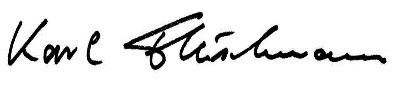 Karl Fleischmann